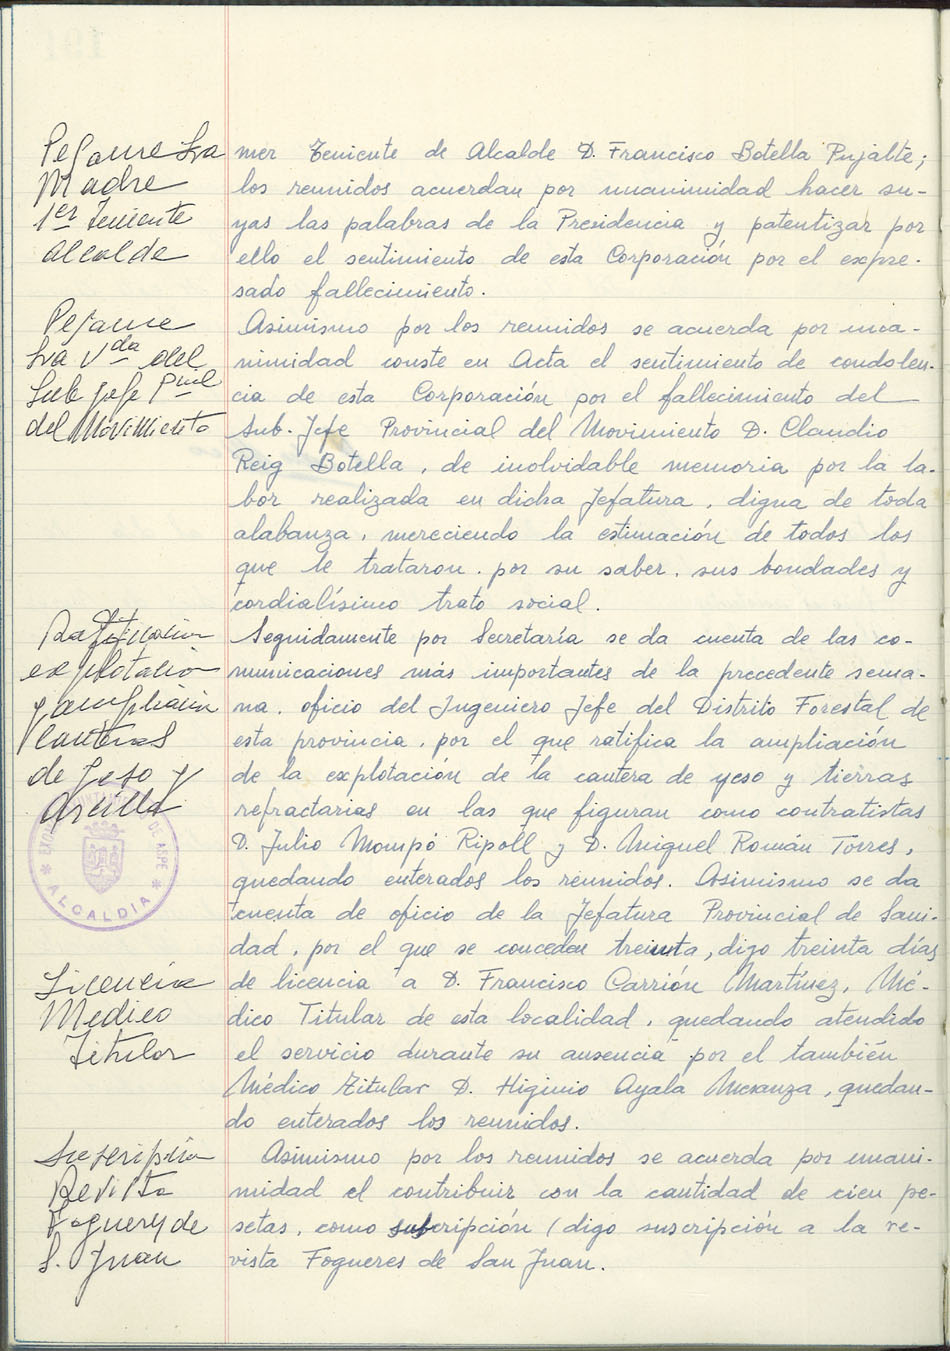 Pésame Sra
Madre
1er Teniente
Alcalde
mer Teniente de Alcalde D. Francisco Botella Pujalte;
los reunidos acuerdan por unanimidad hacer su-
yas las palabras de la Presidencia y patentizar por
ello el sentimiento de esta Corporación por el expre-
sado fallecimiento.
Pésame
Sra Vda del
Sub Jefe Pncil
del Movimiento
Asimismo por los reunidos se acuerda por una-
nimidad conste en Acta el sentimiento de condolen-
cia de esta Corporación por el fallecimiento del
Sub-Jefe Provincial del Movimiento D. Claudio
Reig Botella, de inolvidable memoria por la la-
bor realizada en dicha Jefatura, digna de toda
alabanza, mereciendo la estimación de todos los
que le trataron, por su saber, sus bondades y
cordialísimo trato social.
Ratificación
explotación
y ampliación
canteras
de yeso y
Arcilla
Seguidamente por Secretaría se da cuenta de las co-
municaciones más importantes de la precedente sema-
na, oficio del Ingeniero Jefe del Distrito Forestal de
esta provincia, por el que ratifica la ampliación
de la explotación de la cantera de yeso y tierras
refractarias en las que figuran como contratistas
D. Julio Mompó Ripoll y D. Miguel Román Torres,
quedando enterados los reunidos. Asimismo se da
cuenta de oficio de la Jefatura Provincial de Sani-
dad, por el que se conceden treinta, digo treinta días
de licencia a D. Francisco Carrión Martínez, Mé-
dico Titular de esta localidad, quedando atendido
el servicio durante su ausencia por el también
Médico Titular D. Higinio Ayala Mesanza, quedan-
do enterados los reunidos.
AYUNTAMIENTO DE ASPE
* ALCALDIA *
Licencia
Medico
Titular
Suscripción
Revista
Foguery de
S. Juan
Asimismo por los reunidos se acuerda por unani-
midad el contribuir con la cantidad de cien pe-
setas, como subcripción (digo suscripción a la re-
vista Fogueres de San Juan.